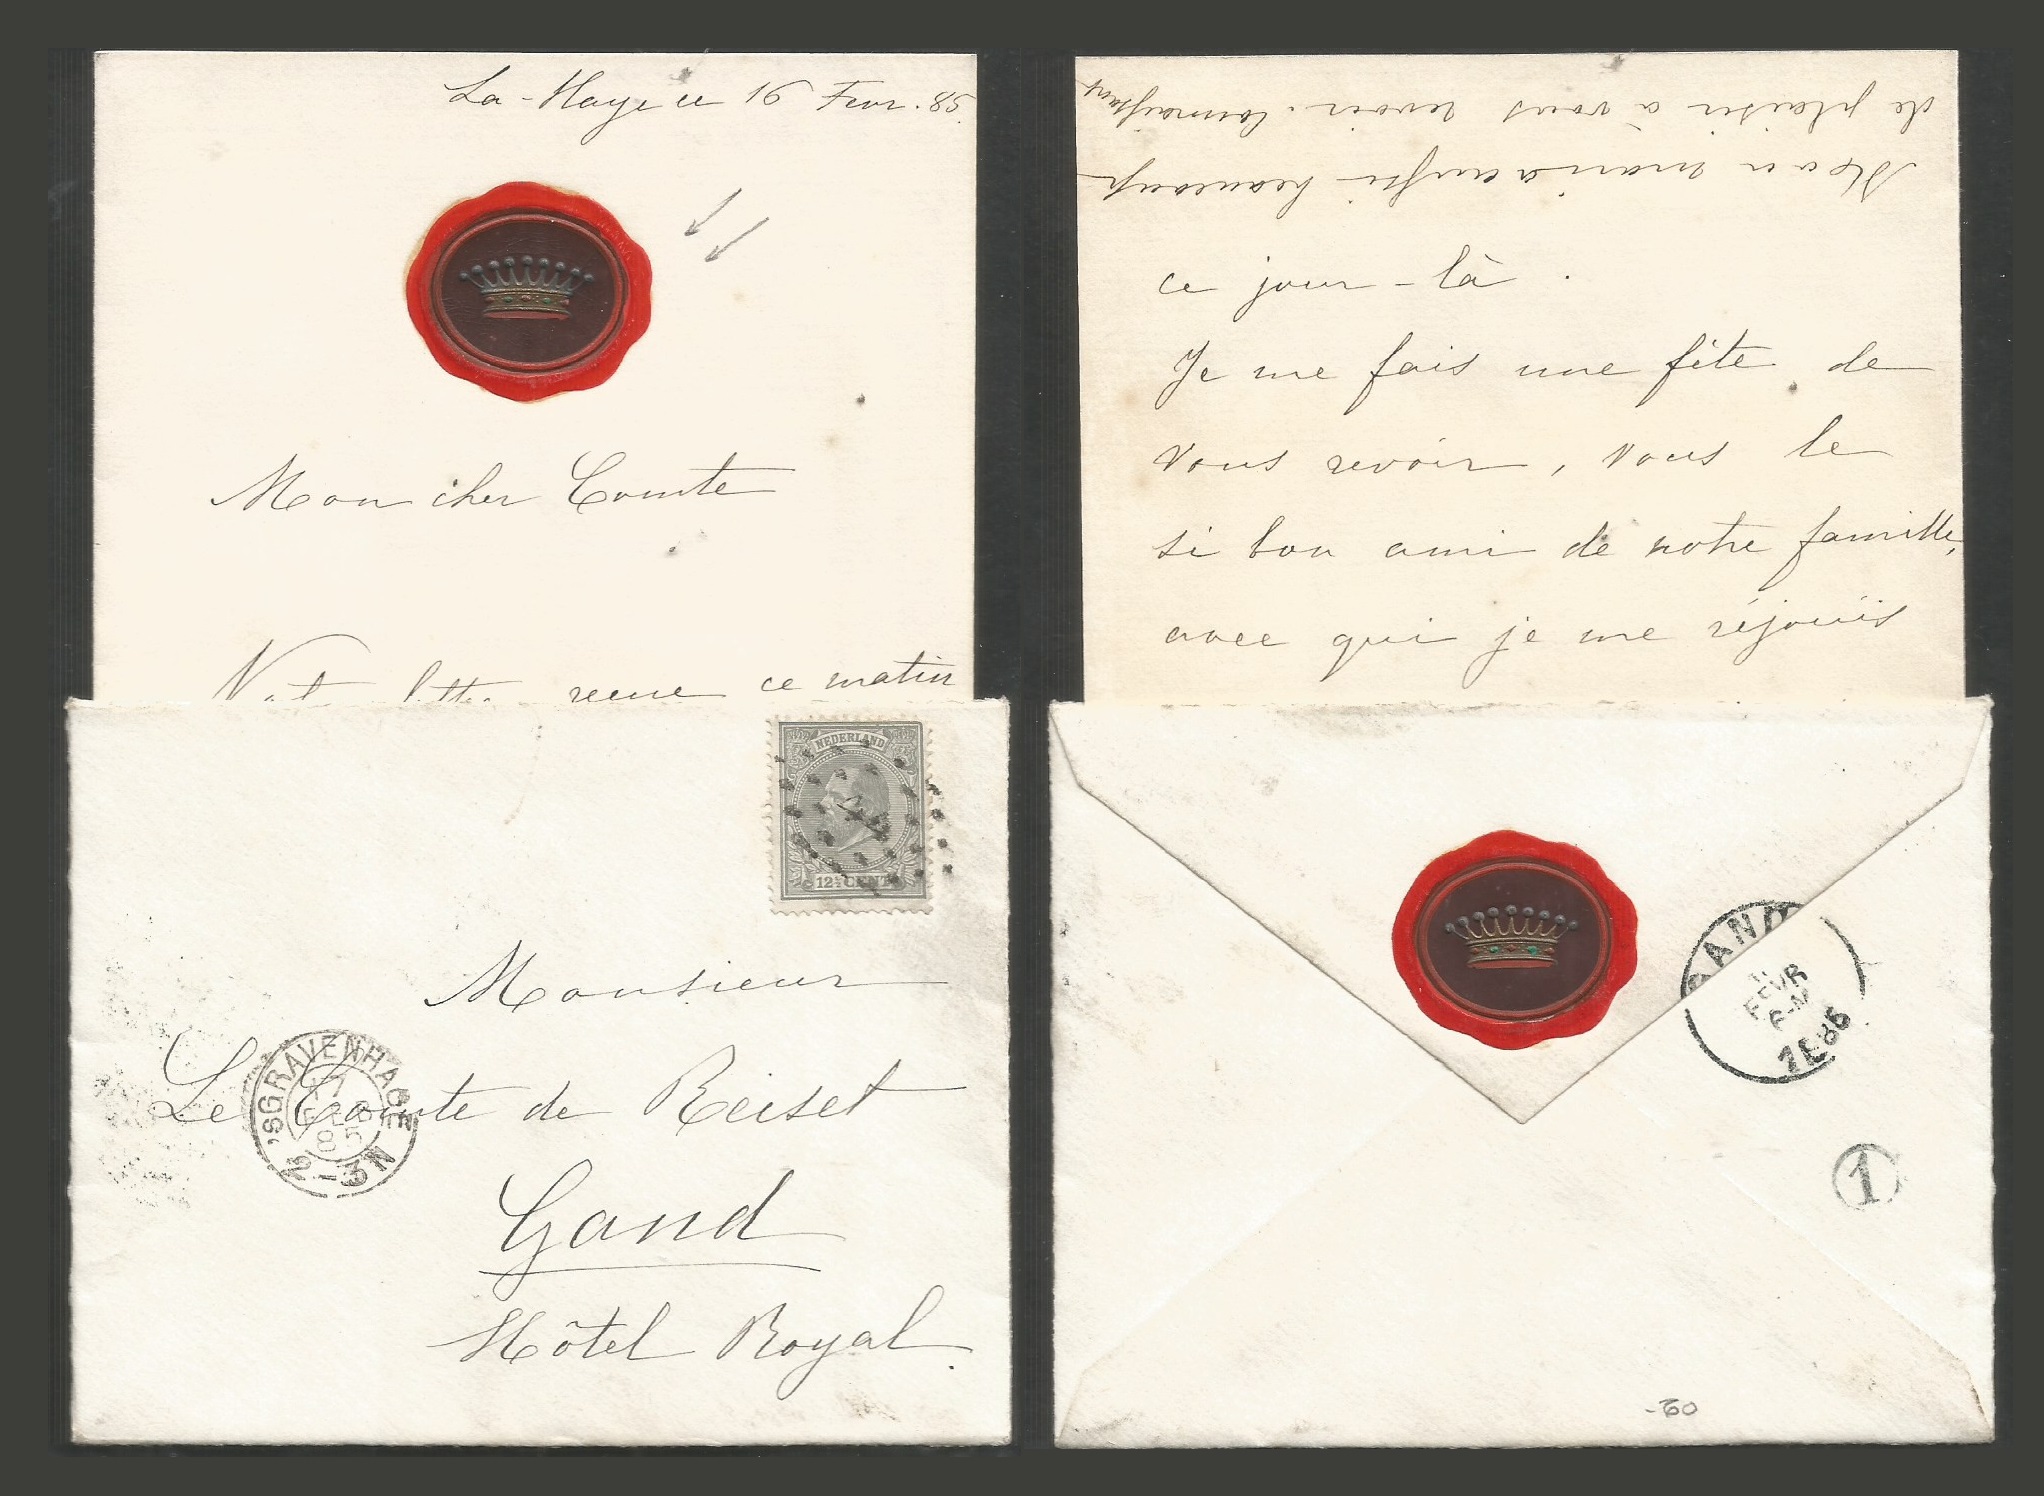 La-Haye ce 16 Fevr. 85.
Mon cher Comte
Votre lettre recue ce matin
de plaisir à vous revoir.
Mon mari a aussi beaucoup
ce jour-là.
Je me fais une fête de
vous revoir, vous le
si bon ami de notre famille,
avec qui je me réjouis
NEDERLAND
12½ CENT
Monsieur
Le Comte de Reiset
Gand
Hôtel Royal.
'SGRAVENHAGE
17
FEB
85
2-3N
GAND
FEVR
1885
1
-60